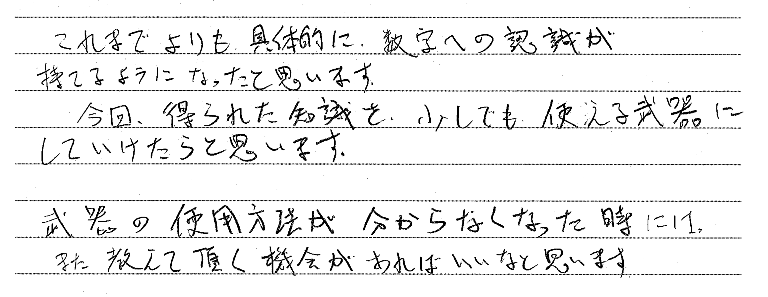 これまでよりも具体的に、数字への認識が
持てるようになったと思います。
今回、得られた知識を、少しでも使える武器に
していけたらと思います。
武器の使用方法が分からなくなった時には、
また教えて頂く機会があればいいなと思います